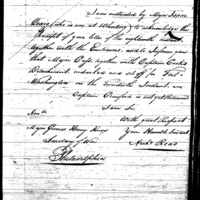 I am instructed by Major Isaac
Craig (who is now at Wheeling) to acknowledge the
Receipt of your letter of the eighteenth
together with the Enclosures and to inform you
that Major Cass, together with Captain
Detachment embarked and set off for Fort
Washington on the Twentieth Instant
Captain Crawford is not yet Returned
I am Sir
With great Respect
Your Humble Servant
Major General Henry Knox
Secretary of War
Philadelphia